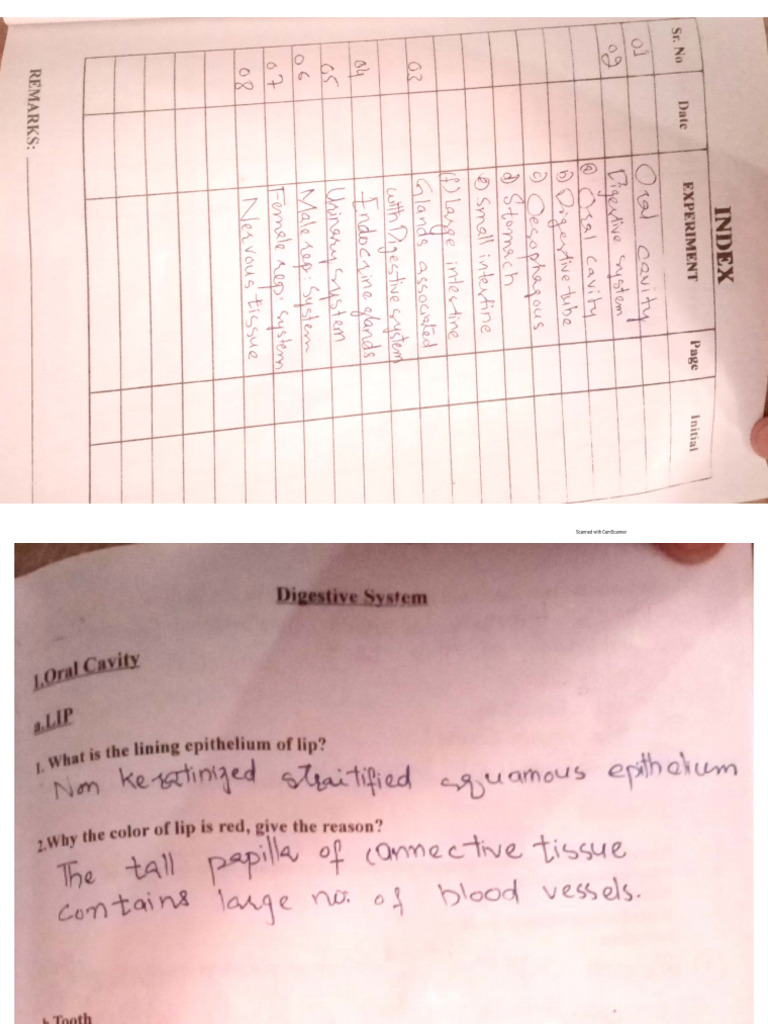 INDEX
Sr. No Date EXPERIMENT Page Initial
01 Oral cavity
02 Digestive system
(a) Oral cavity
(b) Digestive tube
(c) Oesophagous
(d) Stomach
(e) Small intestine
(f) Large intestine
03 Glands associated
with Digestive system
04 Endocrine glands
05 Urinary system
06 Male rep: system
07 Female rep: system
08 Nervous tissue
REMARKS:
Scanned with CamScanner
Digestive System
1.Oral Cavity
a.LIP
1. What is the lining epithelium of lip?
Non keratinized straitified squamous epithelium
2.Why the color of lip is red, give the reason?
The tall papilla of connective tissue
contains large no. of blood vessels.
b.Tooth